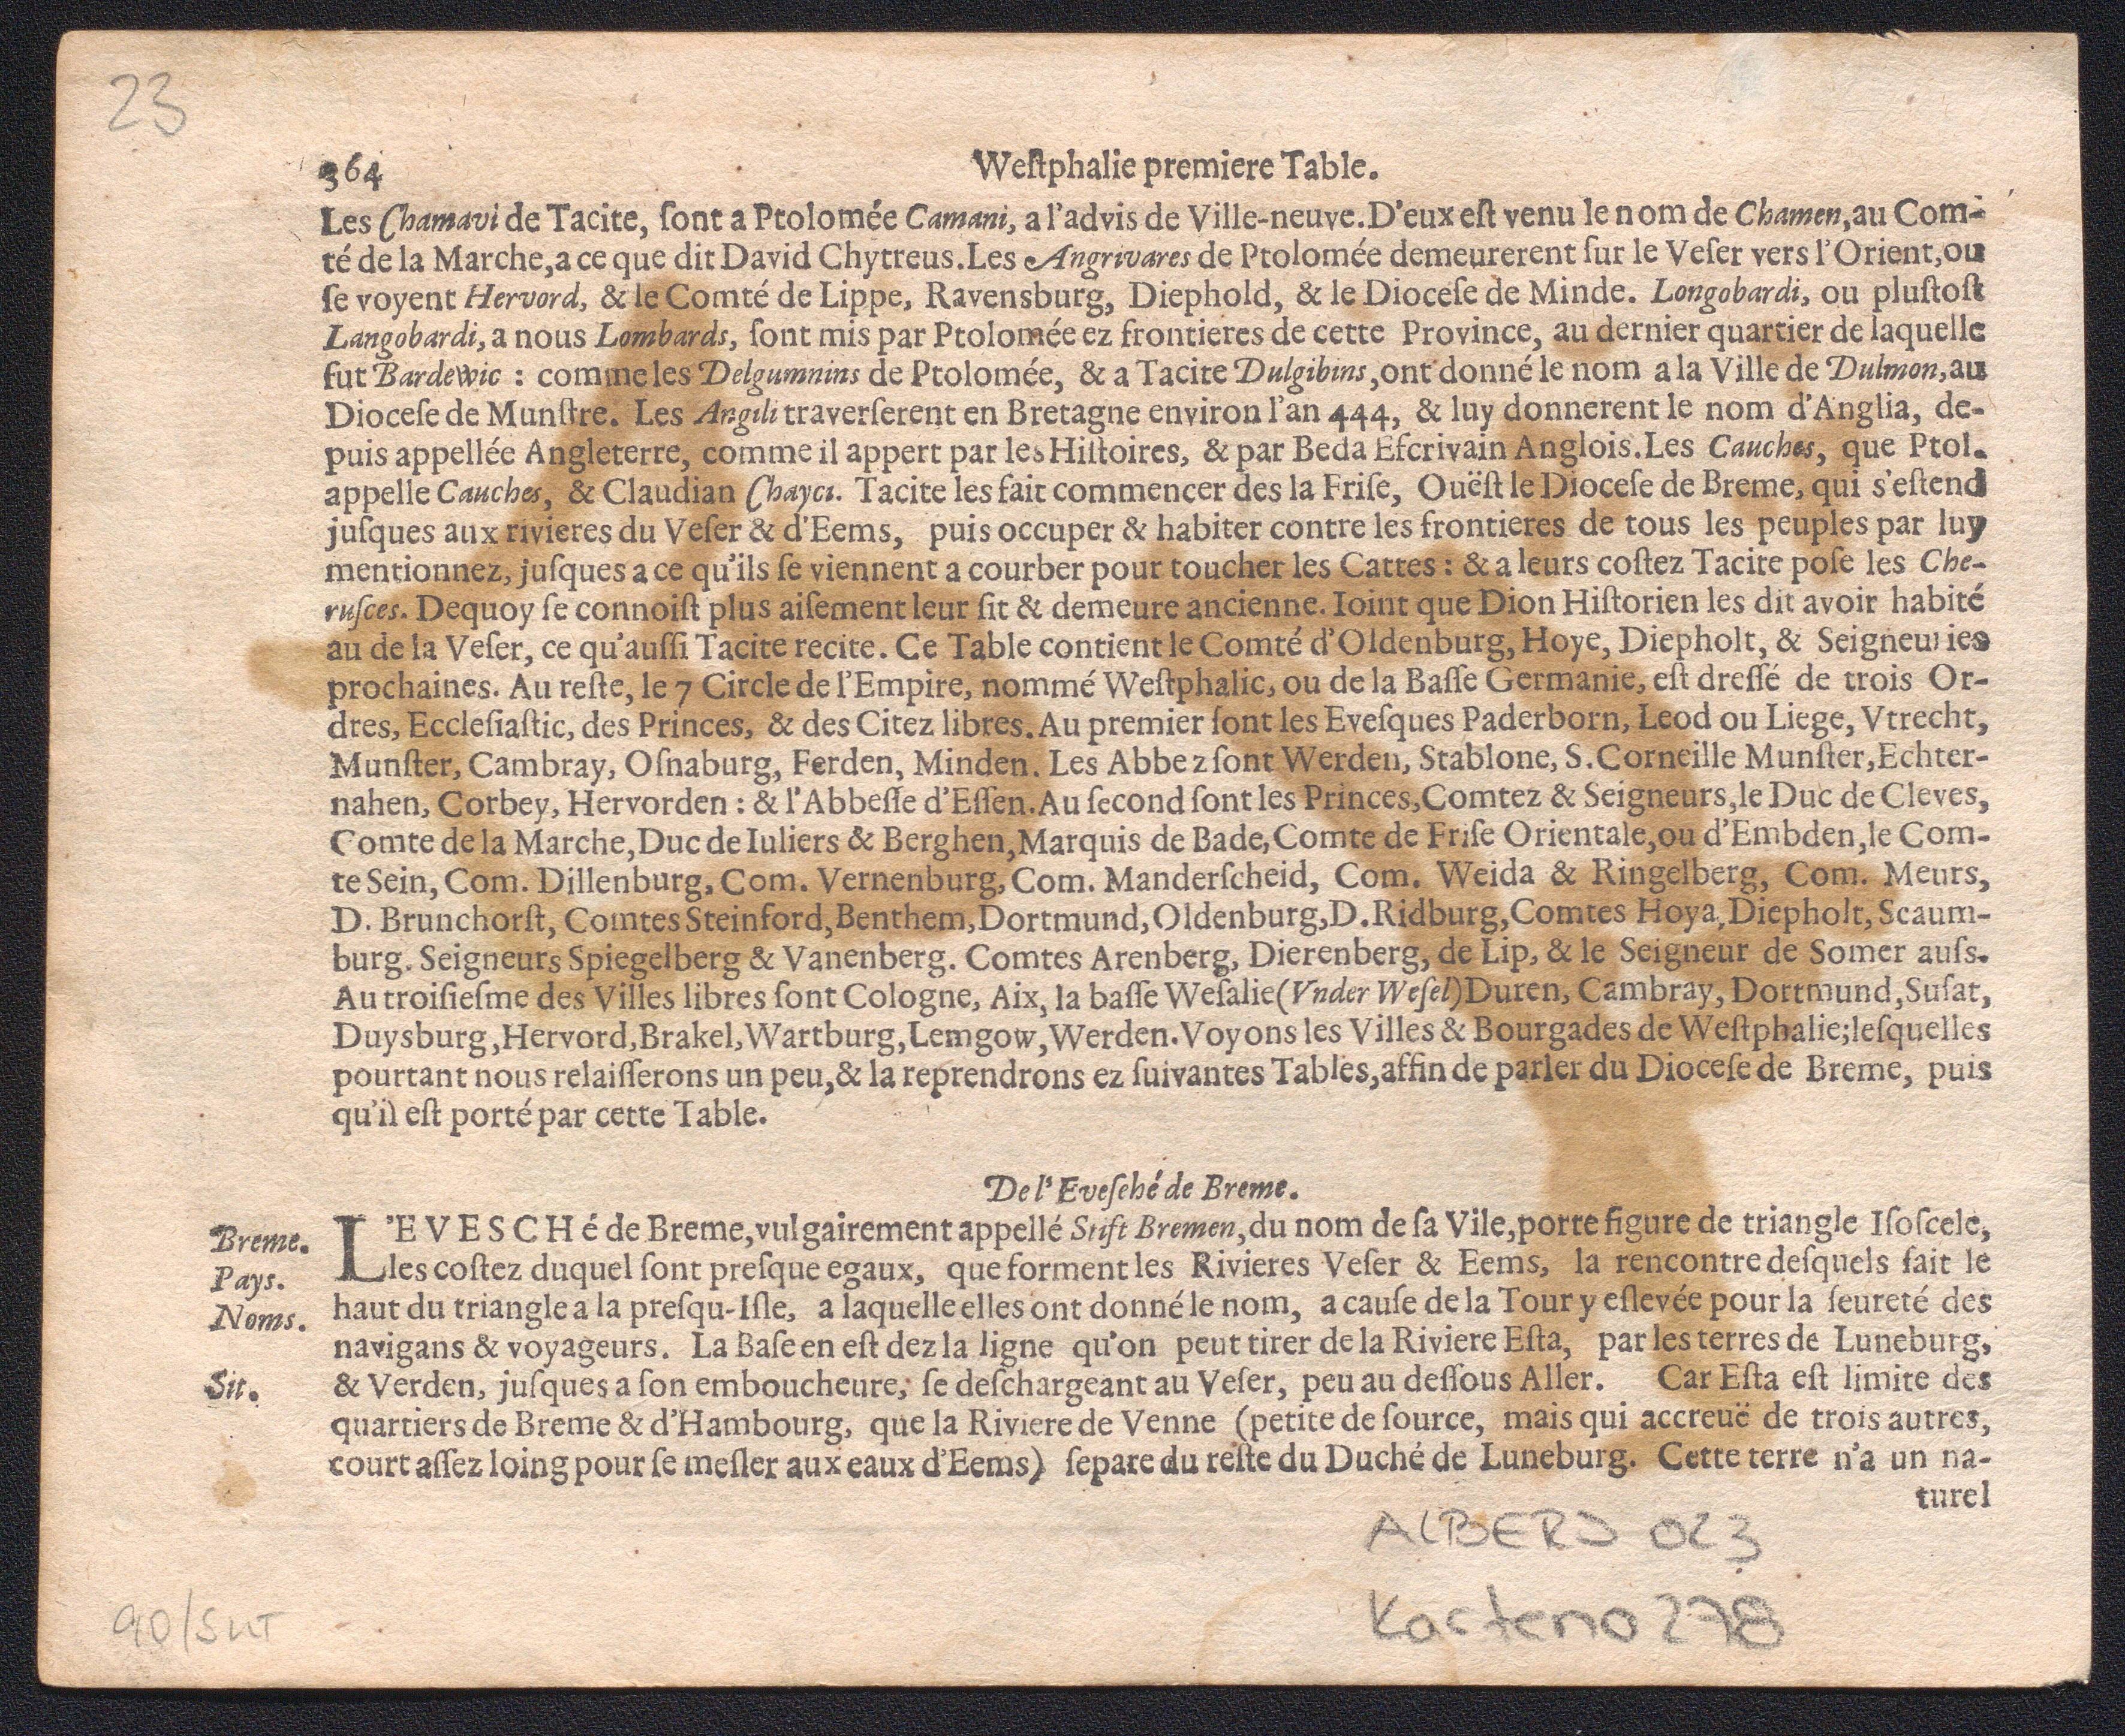 23
364 Weſtphalie premiere Table.
Les Chamavi de Tacite, ſont a Ptolomée Camani, a l'advis de Ville-neuve. D'eux eſt venu le nom de Chamen, au Com-
té de la Marche, a ce que dit David Chytreus. Les Angrivares de Ptolomée demeurerent ſur le Veſer vers l'Orient, ou
ſe voyent Hervord, & le Comté de Lippe, Ravensburg, Diephold, & le Dioceſe de Minde. Longobardi, ou pluſtoſt
Langobardi, a nous Lombards, ſont mis par Ptolomée ez frontieres de cette Province, au dernier quartier de laquelle
fut Bardewic : comme les Delgumnins de Ptolomée, & a Tacite Dulgibins, ont donné le nom a la Ville de Dulmon, au
Dioceſe de Munſtre. Les Angili traverſerent en Bretagne environ l'an 444, & luy donnerent le nom d'Anglia, de-
puis appellée Angleterre, comme il appert par les Hiſtoires, & par Beda Eſcrivain Anglois. Les Cauches, que Ptol.
appelle Cauches, & Claudian Chayci. Tacite les fait commencer des la Friſe, Ouëſt le Dioceſe de Breme, qui s'eſtend
juſques aux rivieres du Veſer & d'Eems, puis occuper & habiter contre les frontieres de tous les peuples par luy
mentionnez, juſques a ce qu'ils ſe viennent a courber pour toucher les Cattes : & a leurs coſtez Tacite poſe les Che-
ruſces. Dequoy ſe connoiſt plus aiſement leur ſit & demeure ancienne. Ioint que Dion Hiſtorien les dit avoir habité
au de la Veſer, ce qu'auſſi Tacite recite. Ce Table contient le Comté d'Oldenburg, Hoye, Diepholt, & Seigneuries
prochaines. Au reſte, le 7 Circle de l'Empire, nommé Weſtphalic, ou de la Baſſe Germanie, eſt dreſſé de trois Or-
dres, Eccleſiaſtic, des Princes, & des Citez libres. Au premier ſont les Eveſques Paderborn, Leod ou Liege, Vtrecht,
Munſter, Cambray, Oſnaburg, Ferden, Minden. Les Abbez ſont Werden, Stablone, S. Corneille Munſter, Echter-
nahen, Corbey, Hervorden : & l'Abbeſſe d'Eſſen. Au ſecond ſont les Princes, Comtez & Seigneurs, le Duc de Cleves,
Comte de la Marche, Duc de Iuliers & Berghen, Marquis de Bade, Comte de Friſe Orientale, ou d'Embden, le Com-
te Sein, Com. Dillenburg, Com. Vernenburg, Com. Manderſcheid, Com. Weida & Ringelberg, Com. Meurs,
D. Brunchorſt, Comtes Steinford, Benthem, Dortmund, Oldenburg, D. Ridburg, Comtes Hoya, Diepholt, Scaum-
burg. Seigneurs Spiegelberg & Vanenberg. Comtes Arenberg, Dierenberg, de Lip, & le Seigneur de Somer auſs.
Au troiſieſme des Villes libres ſont Cologne, Aix, la baſſe Weſalie (Vnder Weſel) Duren, Cambray, Dortmund, Suſat,
Duysburg, Hervord, Brakel, Wartburg, Lemgow, Werden. Voyons les Villes & Bourgades de Weſtphalie; leſquelles
pourtant nous relaiſſerons un peu, & la reprendrons ez ſuivantes Tables, affin de parler du Dioceſe de Breme, puis
qu'il eſt porté par cette Table.
De l'Eveſché de Breme.
Breme. L'EVESCHé de Breme, vulgairement appellé Stift Bremen, du nom de ſa Vile, porte figure de triangle Iſoſcele,
Pays. les coſtez duquel ſont preſque egaux, que forment les Rivieres Veſer & Eems, la rencontre deſquels fait le
Noms. haut du triangle a la preſqu-Iſle, a laquelle elles ont donné le nom, a cauſe de la Tour y eſlevée pour la ſeureté des
navigans & voyageurs. La Baſe en eſt dez la ligne qu'on peut tirer de la Riviere Eſta, par les terres de Luneburg,
Sit. & Verden, juſques a ſon emboucheure, ſe deſchargeant au Veſer, peu au deſſous Aller. Car Eſta eſt limite des
quartiers de Breme & d'Hambourg, que la Riviere de Venne (petite de ſource, mais qui accreuë de trois autres,
court aſſez loing pour ſe meſler aux eaux d'Eems) ſepare du reſte du Duché de Luneburg. Cette terre n'a un na-
turel
ALBERS 023
278
90/